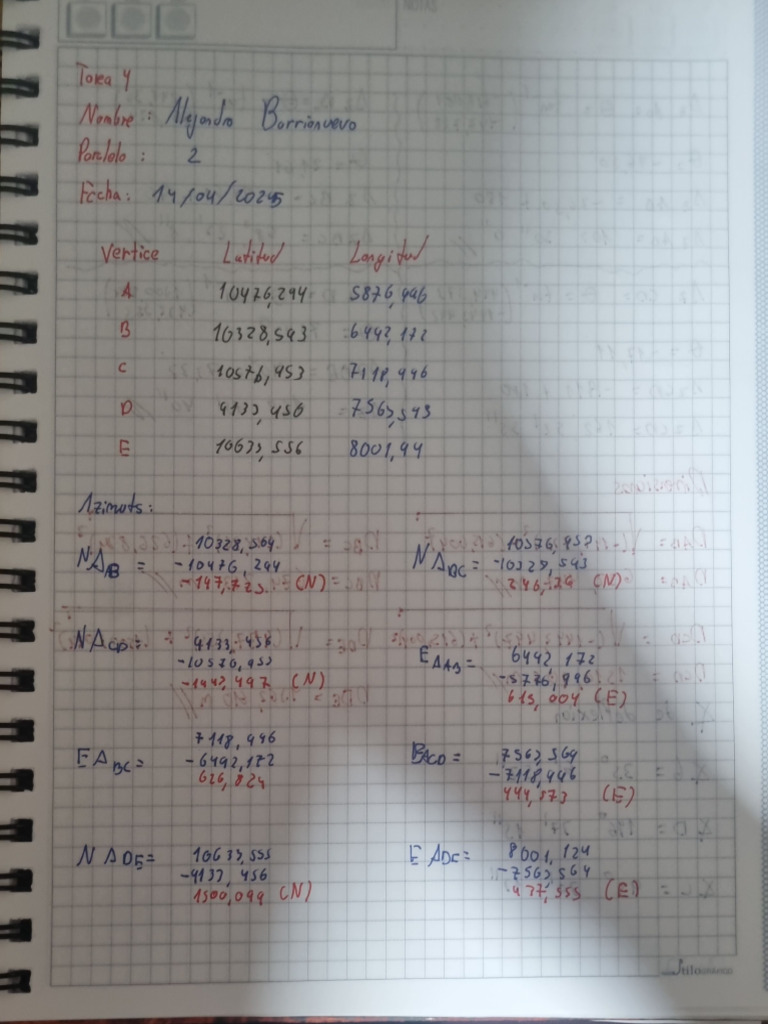 Tarea 4
Nombre : Alejandro Barrionuevo
Paralelo : 2
Fecha: 14/04/2025
Vertice Latitud Longitud
A 10476,294 5876,946
B 10328,543 6442,172
C 10576,453 7118,446
D 9133,456 7563,543
E 10633,556 8001,94
Azimuts:
NA_AB = 10328,564 -10476,294 -147,723. (N)
NA_BC = 10576,453 -10328,543 246,29 (N)
NA_CD = 9133,456 -10576,953 -1443,497 (N)
E A_AB = 6442,172 -5776,946 615,004 (E)
E A_BC = 7118,446 -6492,172 626,824
BACD = 7563,564 -7118,446 444,573 (E)
NADE= 10633,555 -9133,456 1500,099 (N)
E ADE= 8001,124 -7563,564 437,555 (E)